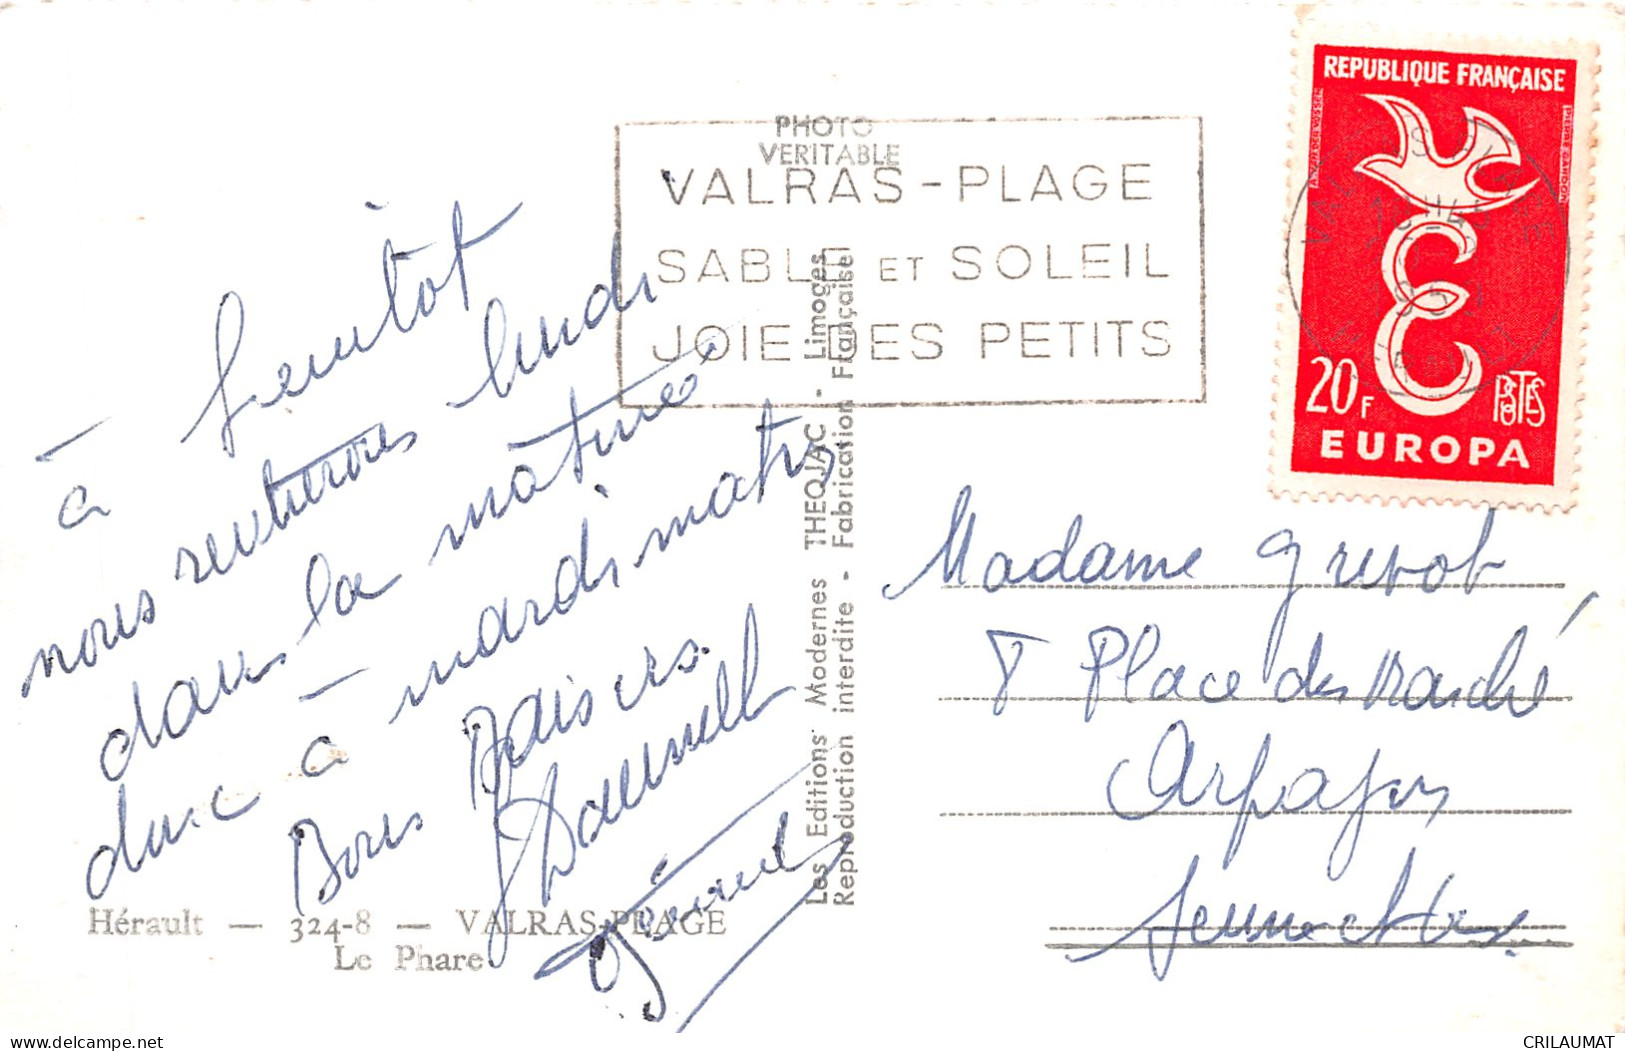 PHOTO
VERITABLE
VALRAS-PLAGE
SABLE ET SOLEIL
JOIE DES PETITS
REPUBLIQUE FRANÇAISE
20F
POSTES
EUROPA
à bientôt
nous rentrerons lundi
dans la matinée
donc à mardi matin
Bons Baisers
Gérard
Hérault — 324-8 — VALRAS-PLAGE
Le Phare
Les Editions Modernes THEOJAC - Limoges
Reproduction interdite - Fabrication Française
Madame
Place du Marché
Arpajon
Seine et Oise
www.delcampe.net
CRILAUMAT